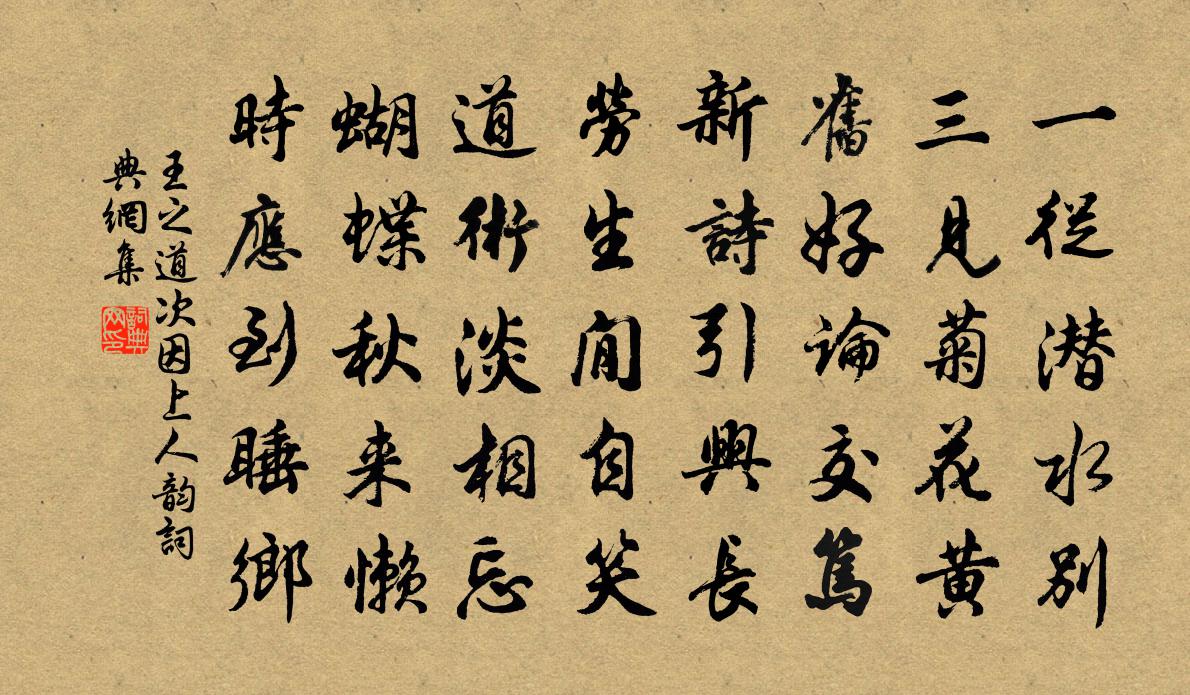 一從潛水別
三見菊花黄
舊好論交篤
新詩引興長
勞生閒自笑
道術淡相忘
蝴蝶秋来懶
時應到睡鄉
王之道次因上人韵詞
典網集
詞典
网印